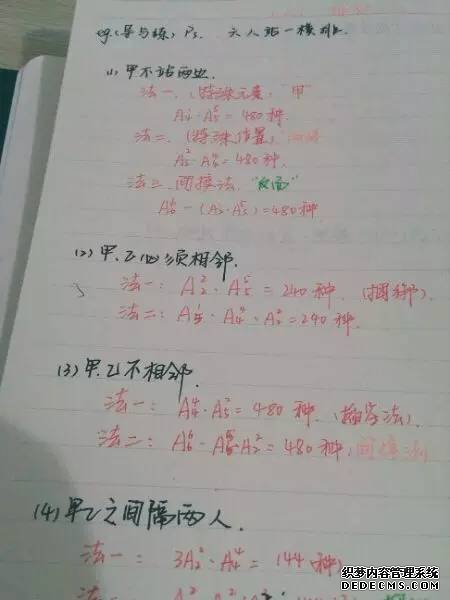 eg(导与练) P3. 六人站一横排.
(1) 甲不站两边.
法一、(特殊元素) 甲
A¹₄·A⁵₅ = 480种.
法二、(特殊位置)
A²₅·A⁴₄ = 480种.
法三、间接法. "反面"
A⁶₆ - (A¹₂·A⁵₅) = 480种
(2) 甲、乙必须相邻.
法一: A²₂·A⁵₅ = 240种. (捆绑).
法二: A⁴₄·A²₂ = 240种.
(3) 甲.乙不相邻.
法一: A⁴₄·A²₅ = 480种. (插空法).
法二: A⁶₆ - A⁵₅·A²₂ = 480种 间接法
(4) 甲乙之间隔两人.
法一: 3A²₂·A⁴₄ = 144种)
织梦内容管理系统
DEDECMS.COM